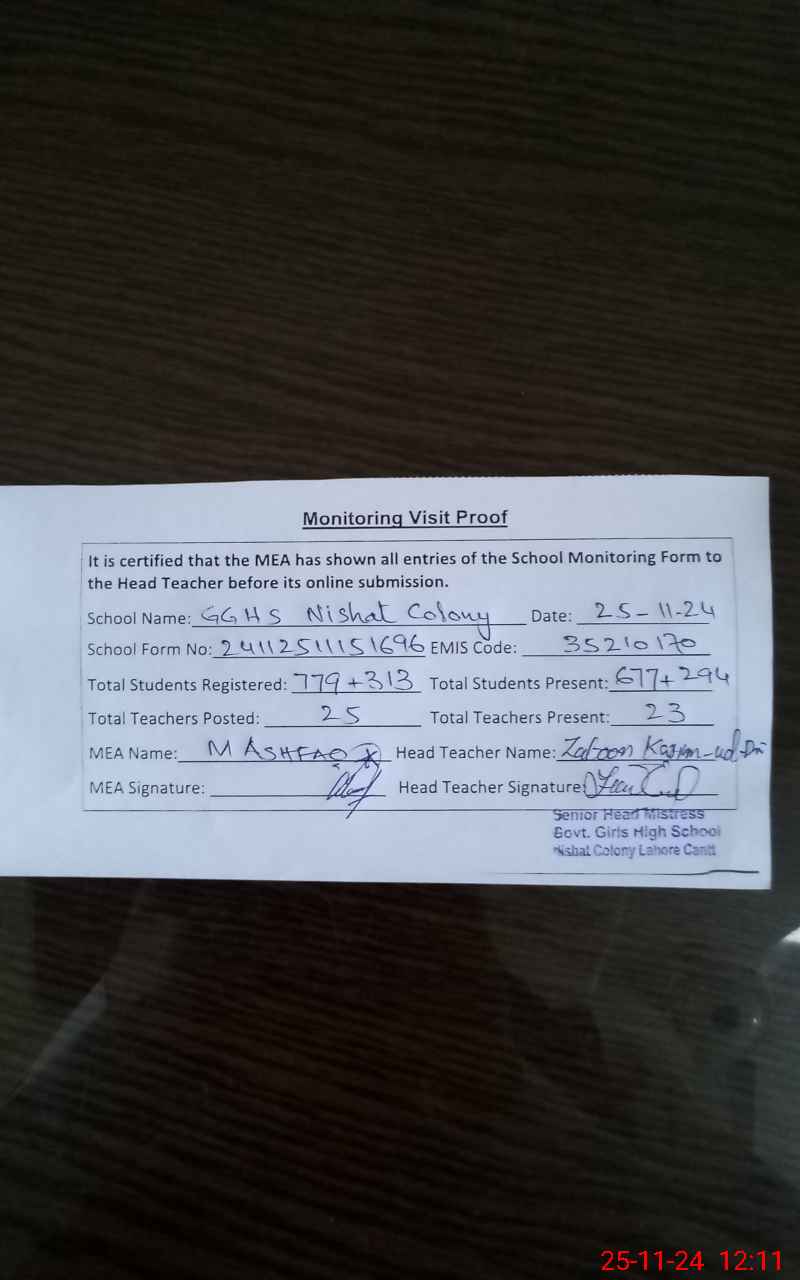 Monitoring Visit Proof
It is certified that the MEA has shown all entries of the School Monitoring Form to
the Head Teacher before its online submission.
School Name: GGHS Nishat Colony Date: 25-11-24
School Form No: 24112511151696 EMIS Code: 35210170
Total Students Registered: 779+313 Total Students Present: 677+294
Total Teachers Posted: 25 Total Teachers Present: 23
MEA Name: M ASHFAQ Head Teacher Name:
MEA Signature: Head Teacher Signature:
Senior Head Mistress
Govt. Girls High School
Nishat Colony Lahore Cantt
25-11-24 12:11